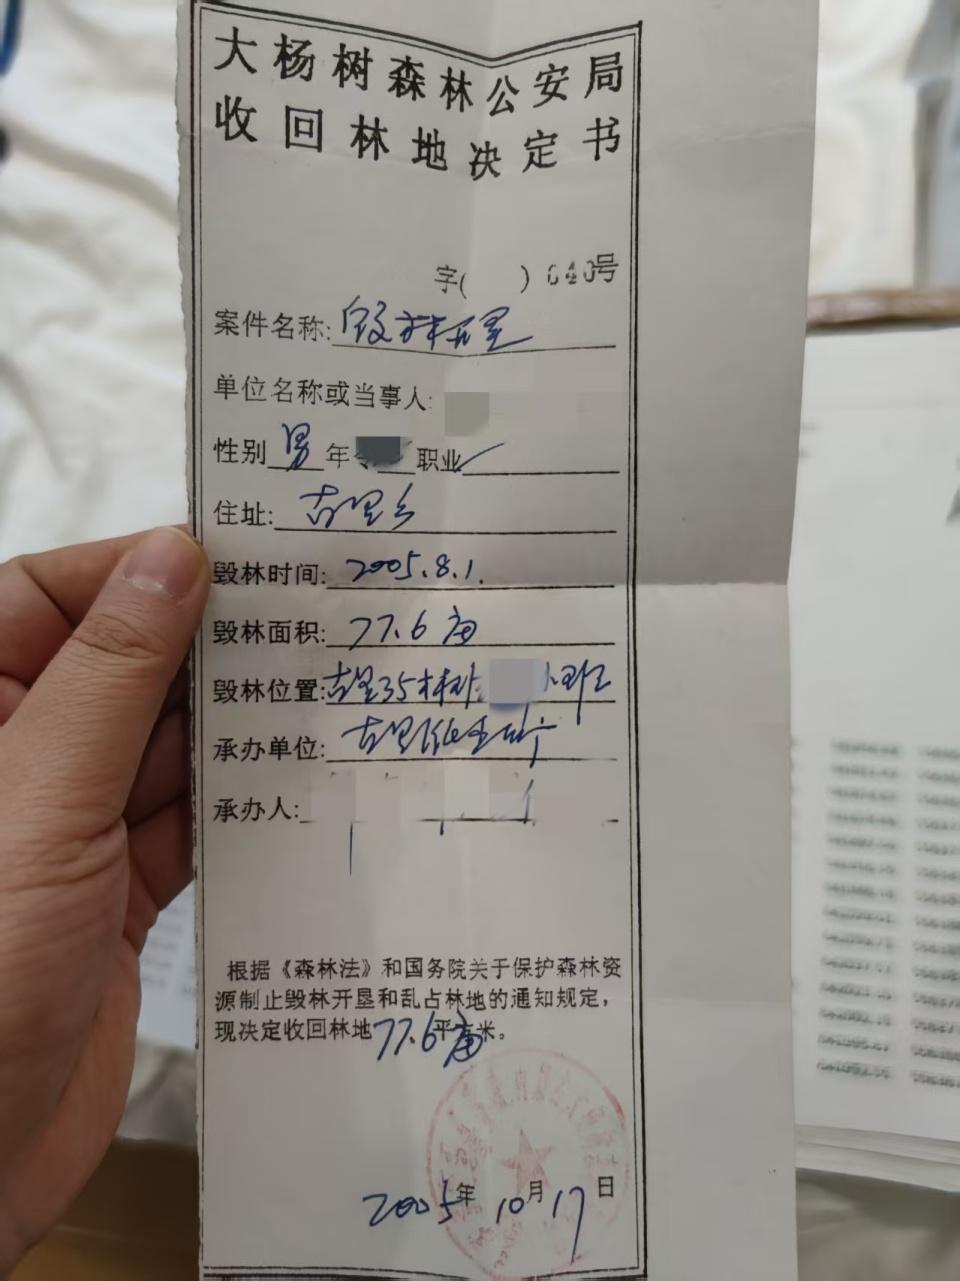 大杨树森林公安局
收回林地决定书
字( ) 040号
案件名称:毁林开垦
单位名称或当事人:
性别 男 年 职业
住址: 古里乡
毁林时间: 2005.8.1.
毁林面积: 77.6亩
毁林位置:古里35林班 小班
承办单位: 古里派出所
承办人:
根据《森林法》和国务院关于保护森林资
源制止毁林开垦和乱占林地的通知规定,
现决定收回林地77.6亩平方米。
2005年10月17日